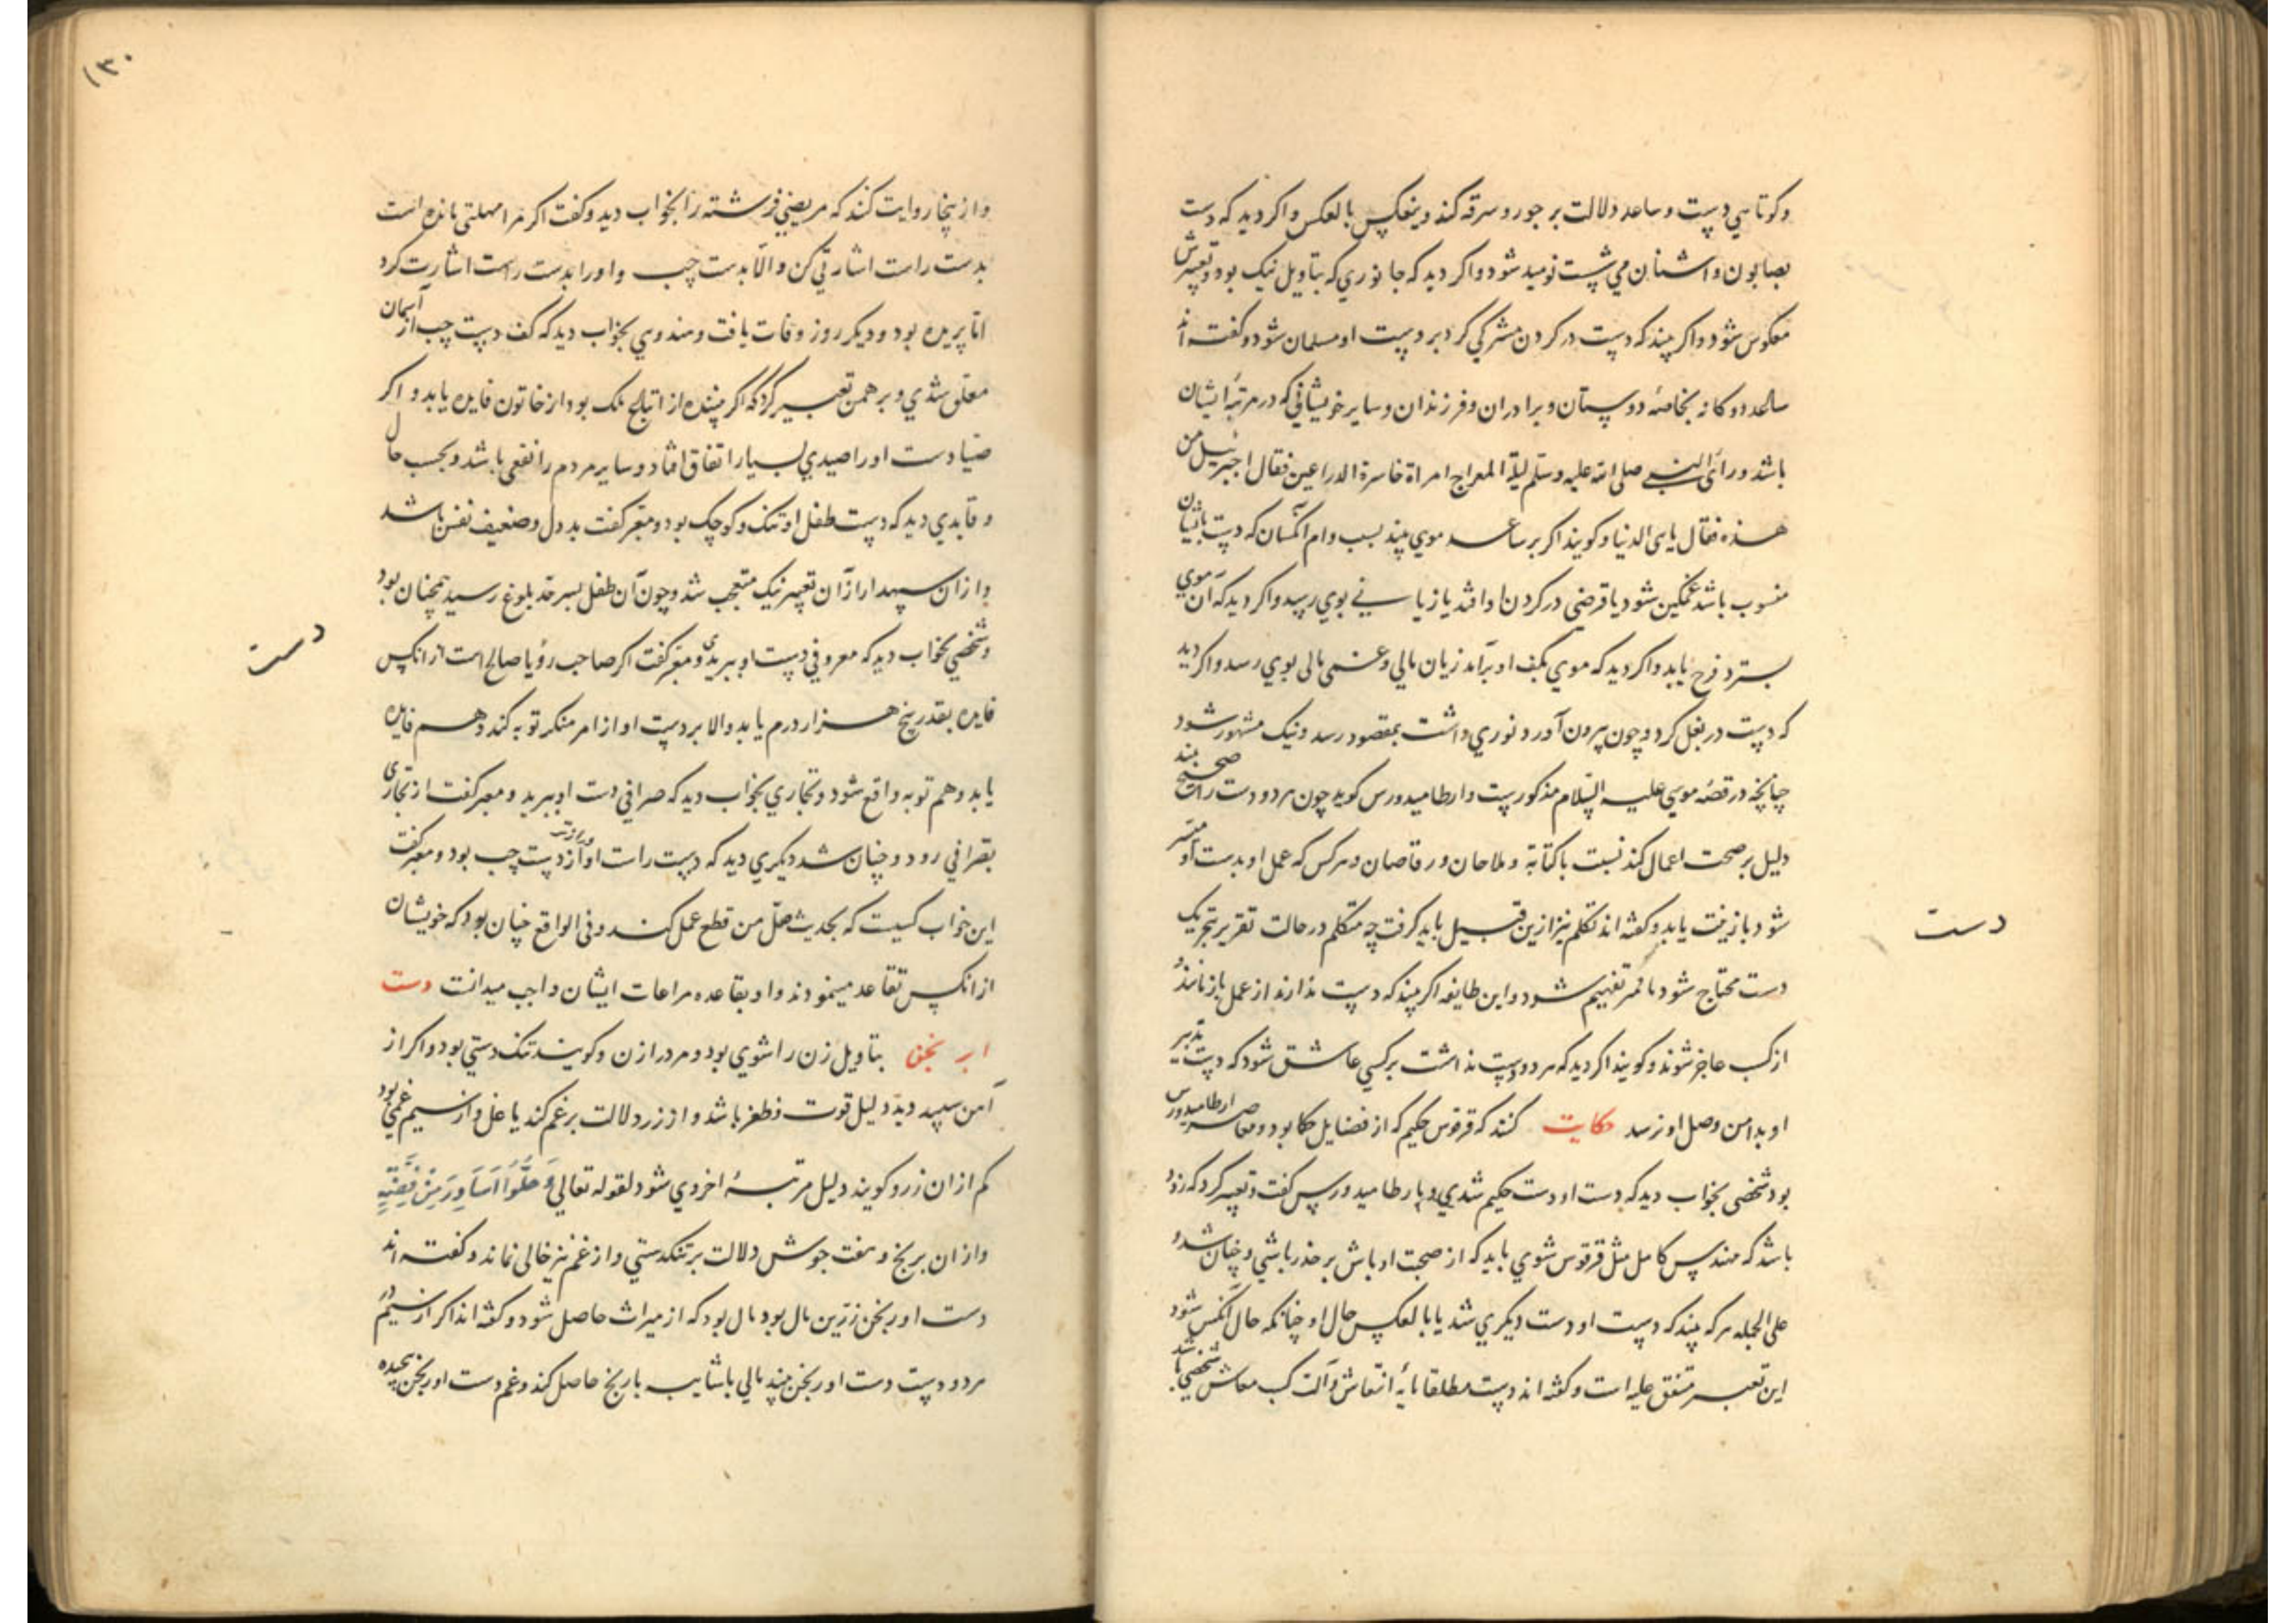 وکوتاهي دست وساعد دلالت بر جور وسرقه کند وبنعکس بالعکس واکر دید که دست
بصابون واشنان مي شست نومید شود واکر دید که جانوري که بتاویل نیک بود وتعبیرش
معکوس شود واکر بیند که دست در کردن مشرکي کرد بر دست او مسلمان شود وکفته اند
ساعد دوکانه بخاصه دوستان وبرادران وفرزندان وسایر خویشاني که در مرتبۀ ایشان
باشد ورأی النبي صلی الله علیه وسلم لیلة المعراج امراة حاسرة الذراعین فقال اجبرئیل من
هذه فقال یا الدنیا وکویند اکر بر ساعد موي بیند بسبب وام انکسان که دست بایشان
منسوب باشد غمکین شود یا قرضی در کردن او افتد یا زیاني بوي رسد واکر دید که آن موي
بسترد فرح یابد واکر دید که موي بکف او برآمد زیان مالي وغمی مالی بوي رسد واکر دید
که دست در بغل کرد وچون بیرون آورد نوري داشت بمقصود رسد ونیک مشهور شود
چنانچه در قصۀ موسي علیه السلام مذکورست وارطامیدورس کوید چون هر دو دست راست صحیح بیند
دلیل بر صحت اعمال کند نسبت با کتابة وملاحان ورقاصان وهرکس که عمل او بدست او میسر
شود باز یفت یابد وکفته اند تکلم نیز ازین قبیل باید کرفت چه متکلم در حالت تقریر بتحریک
دست محتاج شود تفهیم شود واین طایفه اکر بیند که دست ندارند از عمل باز مانند و
از کسب عاجز شوند وکویند اکر دید که هر دو دست نداشت برکسي عاشق شود که دست تدبیر
او بدامن وصل او نرسد حکایت کنند که قرقوس حکیم که از فضایل حکما بود ومعاصر ارطامیدورس
بود شخصی بخواب دید که دست او دست حکیم شدي وبارطامیدورس کفت وتعبیر کرد که زود
باشد که مهندس کامل مثل قرقوس شوي باید که از صحبت اوباش بر حذر باشي وچنان شد و
علی الجمله هرکه بیند که دست او دست دیکري شد یا بالعکس حال او چنانکه حال آنکس شود
این تعبیر متفق علیه است وکفته اند دست مطلقا مایۀ انتعاش وآلت کسب معاش شخصي باشد
دست
۱۳۰
وازینجا روایت کنند که مریضي فرشته را بخواب دید وکفت اکر مرا مهلتی مانده است
بدست راست اشارتي کن والا بدست چپ واورا بدست راست اشارت کرد
اما بریده بود ودیکر روز وفات یافت وهندوي بخواب دید که کف دست چپ از آسمان
معلق شدي وبرهمن تعبیر کرد که اکر بیننده از اتباع ملک بود از خاتون فایده یابد واکر
صیادست اورا صیدي بسیار اتفاق افتد وسایر مردم را نفعی باشد وبحسب حال
وقایدي دید که دست طفل او تنک وکوچک بود ومعبر کفت بد دل وضعیف نفس باشد
وازان سپهدار ازآن تعبیر نیک متعجب شد وچون آن طفل بسرحد بلوغ رسید همچنان بود
وشخصي بخواب دید که معروفي دست او ببریدي ومعبر کفت اکر صاحب رؤیا صالح است از انکس
فایده بقدر پنج هزار درم یابد والا بر دست او از امر منکر توبه کند وهم فایده
یابد وهم توبه واقع شود ونجاري بخواب دید که صرافي دست او ببرید ومعبر کفت از نجاری
بصرافي رود وچنان شد دیکري دید که دست راست او درازتر از دست چپ بود ومعبر کفت
این خواب کسیست که بحدیث صل من قطع عمل کند وفی الواقع چنان بود که خویشان
از انکس تقاعد مینمودند واو بقاعده مراعات ایشان واجب میدانست دست
ابرنجن بتاویل زن را شوي بود ومرد را زن وکویند تنک دستي بود واکر از
آهن سپید دید دلیل قوت وظفر باشد واز زر دلالت بر غم کند یا غل واز سیم غمي بود
کم ازان زر وکویند دلیل مرتبۀ اخروي شود لقوله تعالي وَحُلُّوا اَسَاوِرَ مِنْ فِضَّةٍ
وازان برنج وهفت جوش دلالت بر تنکدستي واز غم نیز خالی نماند وکفته اند
دست اورنجن زرین مال بود مال بود که از میراث حاصل شود وکفته اند اکر از سیم در
هر دو دست دست اورنجن بیند مالي با رنج حاصل کند وغم دست اورنجن پیچیده
دست